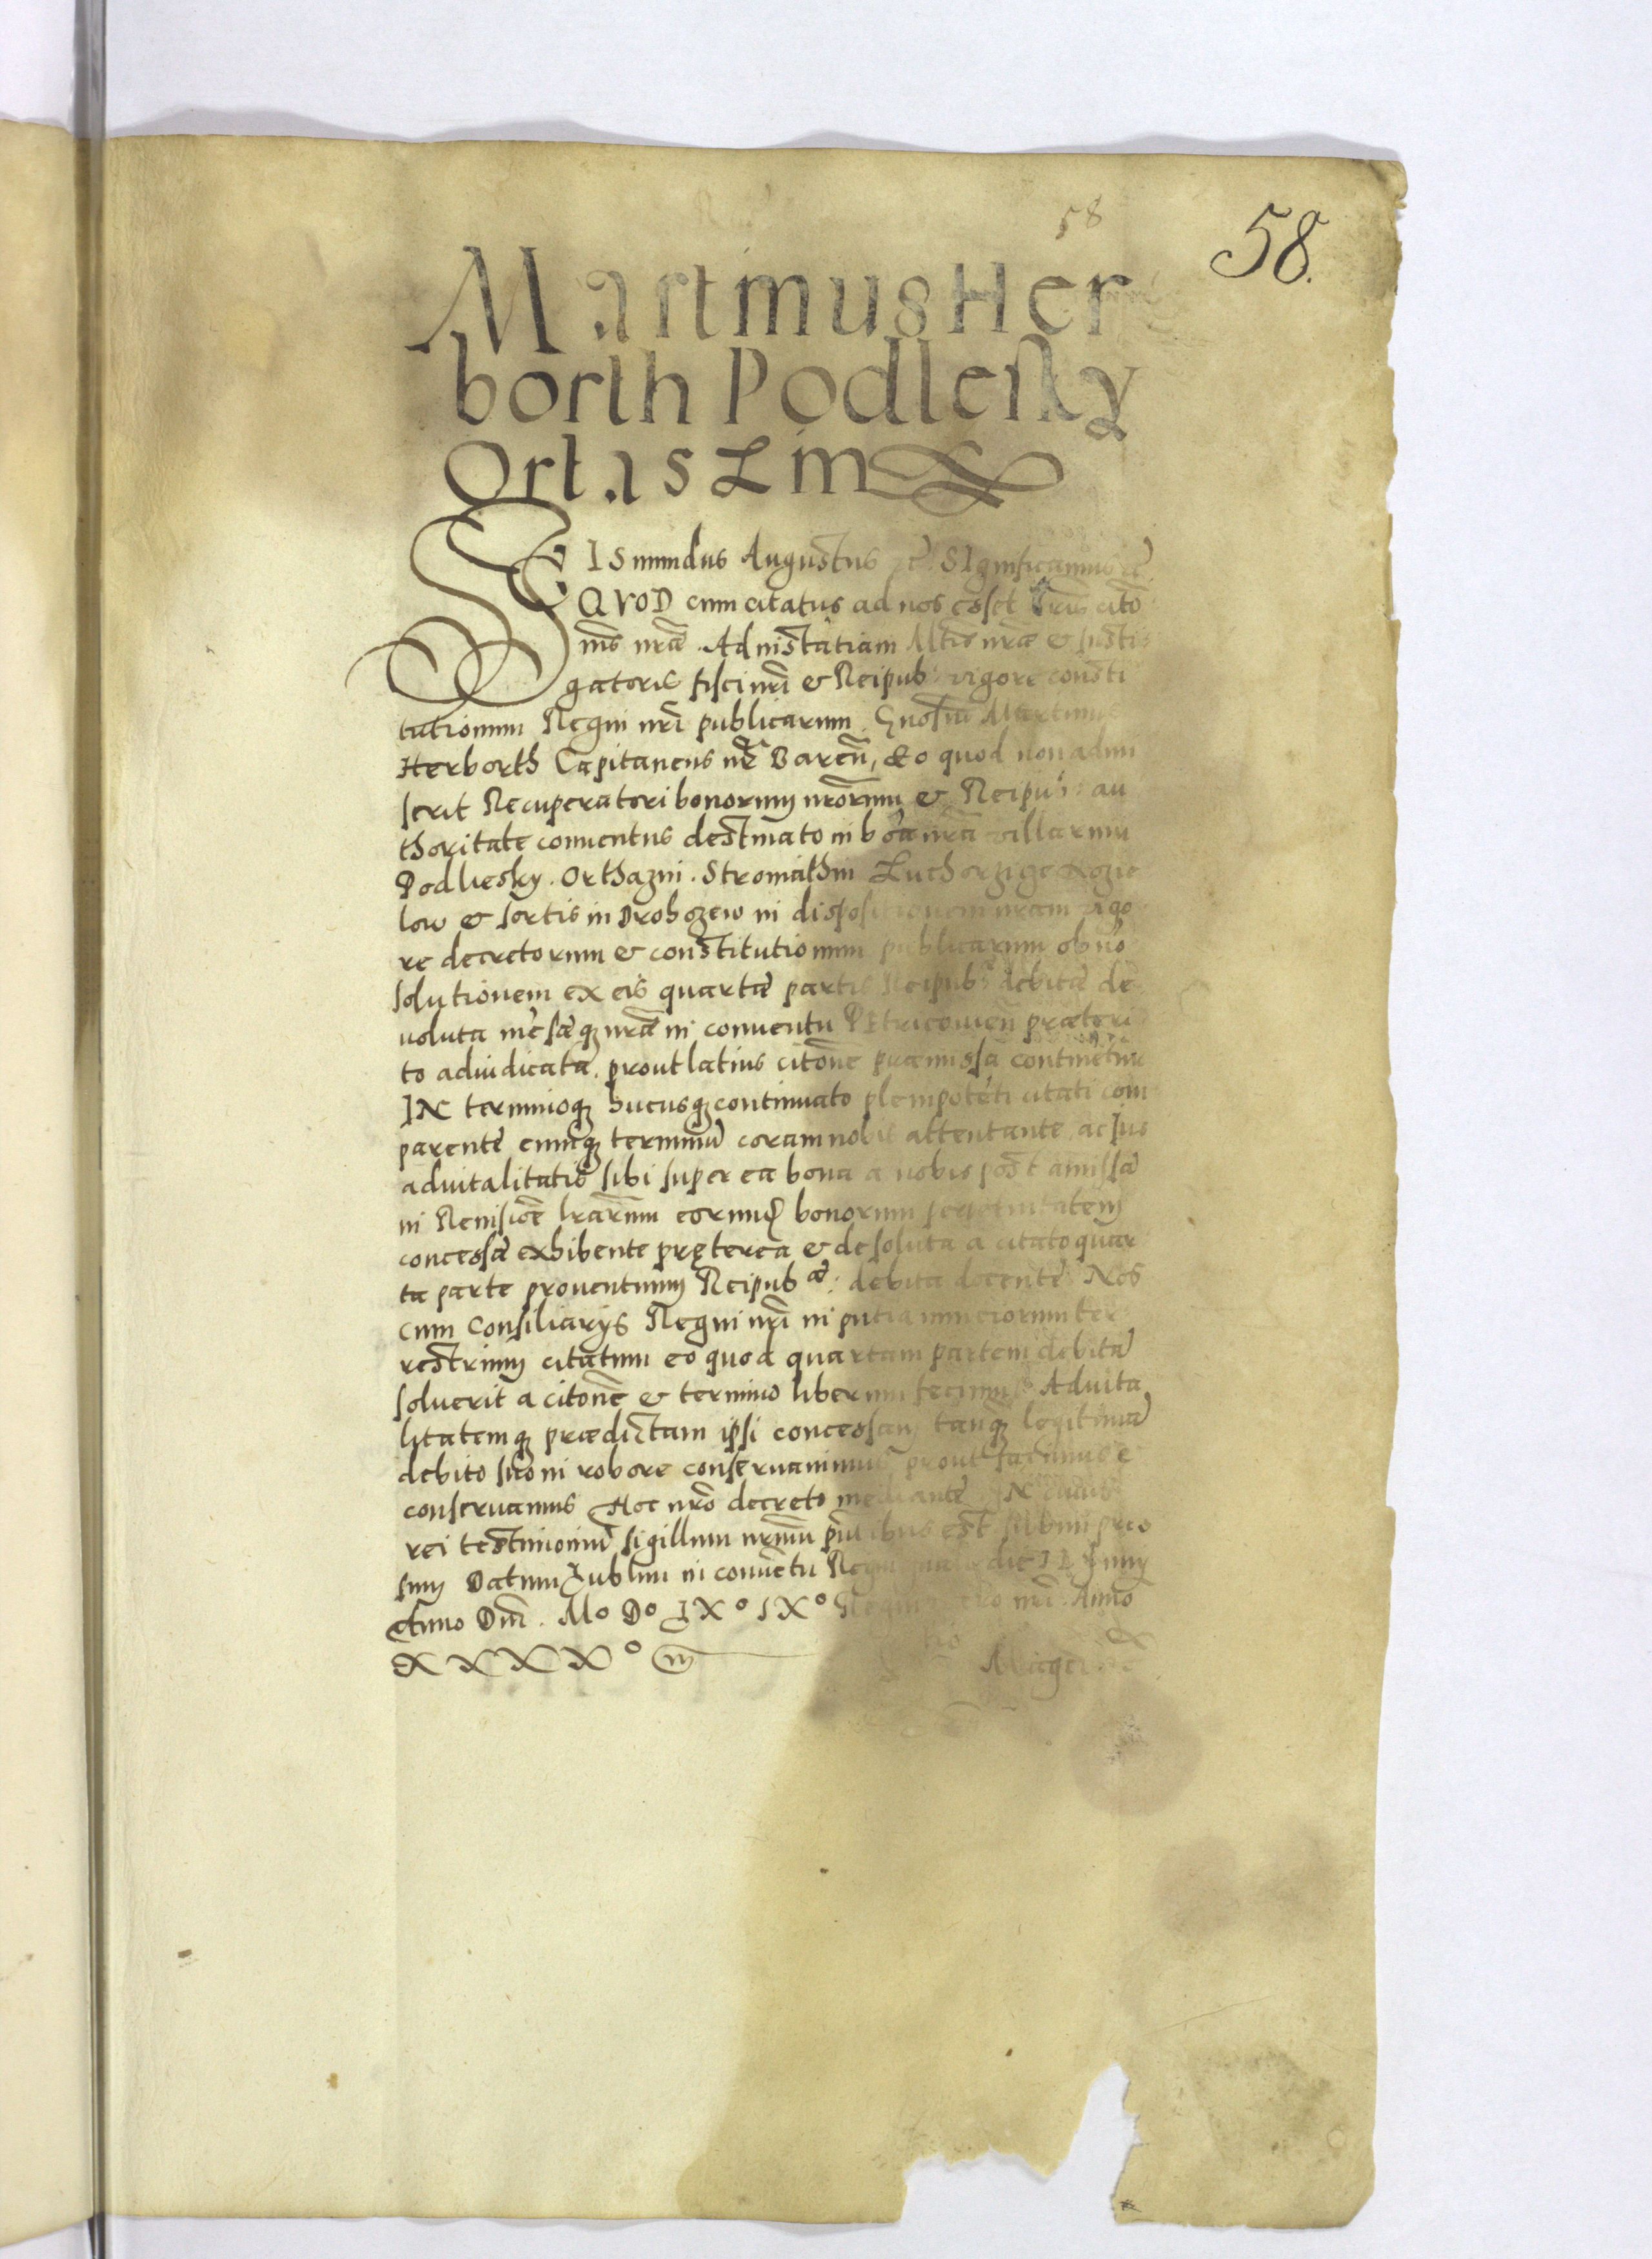 58
58.
Martinus Her
borth Podleisky
Ortas Lin
SGISmundus Augustus etc̃ SIgnificamus etc̃
QVOD cum citatus ad nos esset lr̃is citõ
nis nr̃æ. Ad instãtiam Mtis nr̃æ & Insti
gatoris fisci nr̃i & Reipub: vigore consti
tutionum Regni nr̃i publicarum Gnosus Martinus
Herborth Capitaneus nr̃ Bareñ, Eo quod non admi
serit Recuperatori bonorum nr̃orum & Reipub: au
thoritate conuentus destinato in bõa nr̃a villarum
Podliesky. Orthazni. Stroniathin Luchorzige Kozie
low & sortis in Drohozew in dispositionem nram vigo
re decretorum & constitutionum publicarum ob nõ
solutionem ex eis quartæ partis Reipub: debitæ de
uoluta mẽsæq; nr̃æ in conuentu Petricouieñ præteri
to adiudicata. prout latius citõne præmissa continetur
IN terminoq; hucusq; continuato plenipotẽti citati com
parentẽ eumq; terminũ coram nobis attentante, ac Ius
aduitalitatis sibi super ea bona a nobis post amissã
in Reuisiõe lr̃arum eorund bonorum perpetuitatem
concessũ exhibente prẹterea & de soluta a citato quar
ta parte prouentuum Reipubcæ: debita docentẽ Nos
cum Consiliarijs Regni nr̃i in pn̄tia nunciorum ter
restrium citatum eo quod quartam partem debitã
soluerit a citõne & termino liberum fecimus Aduita
litatemq; prædictam ipsi concessam tanq; legitimã
debito suo in robore conseruauimus prout facimus &
conseruamus Hoc nr̃o decreto mediante IN cuius
rei testimoniũ sigillum nr̃um pñtibus est subimpres
sum Datum Lublini in conuẽtu Regni die Iunij
Anno Dñi. Mo Do LXo IXo Regni vero nr̃i Anno
XXXXo